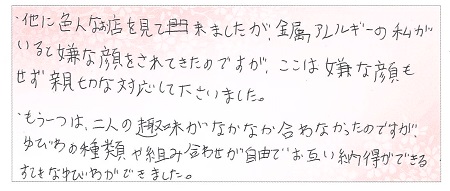 ・他に色んなお店を見て出来ましたが、金属アレルギーの私が
いると嫌な顔をされてきたのですが、ここは嫌な顔も
せず親切な対応して下さいました。
・もう一つは、二人の趣味がなかなか合わなかったのですが
ゆびわの種類や組み合わせが自由でお互い納得ができる
すてきなゆびわができました。